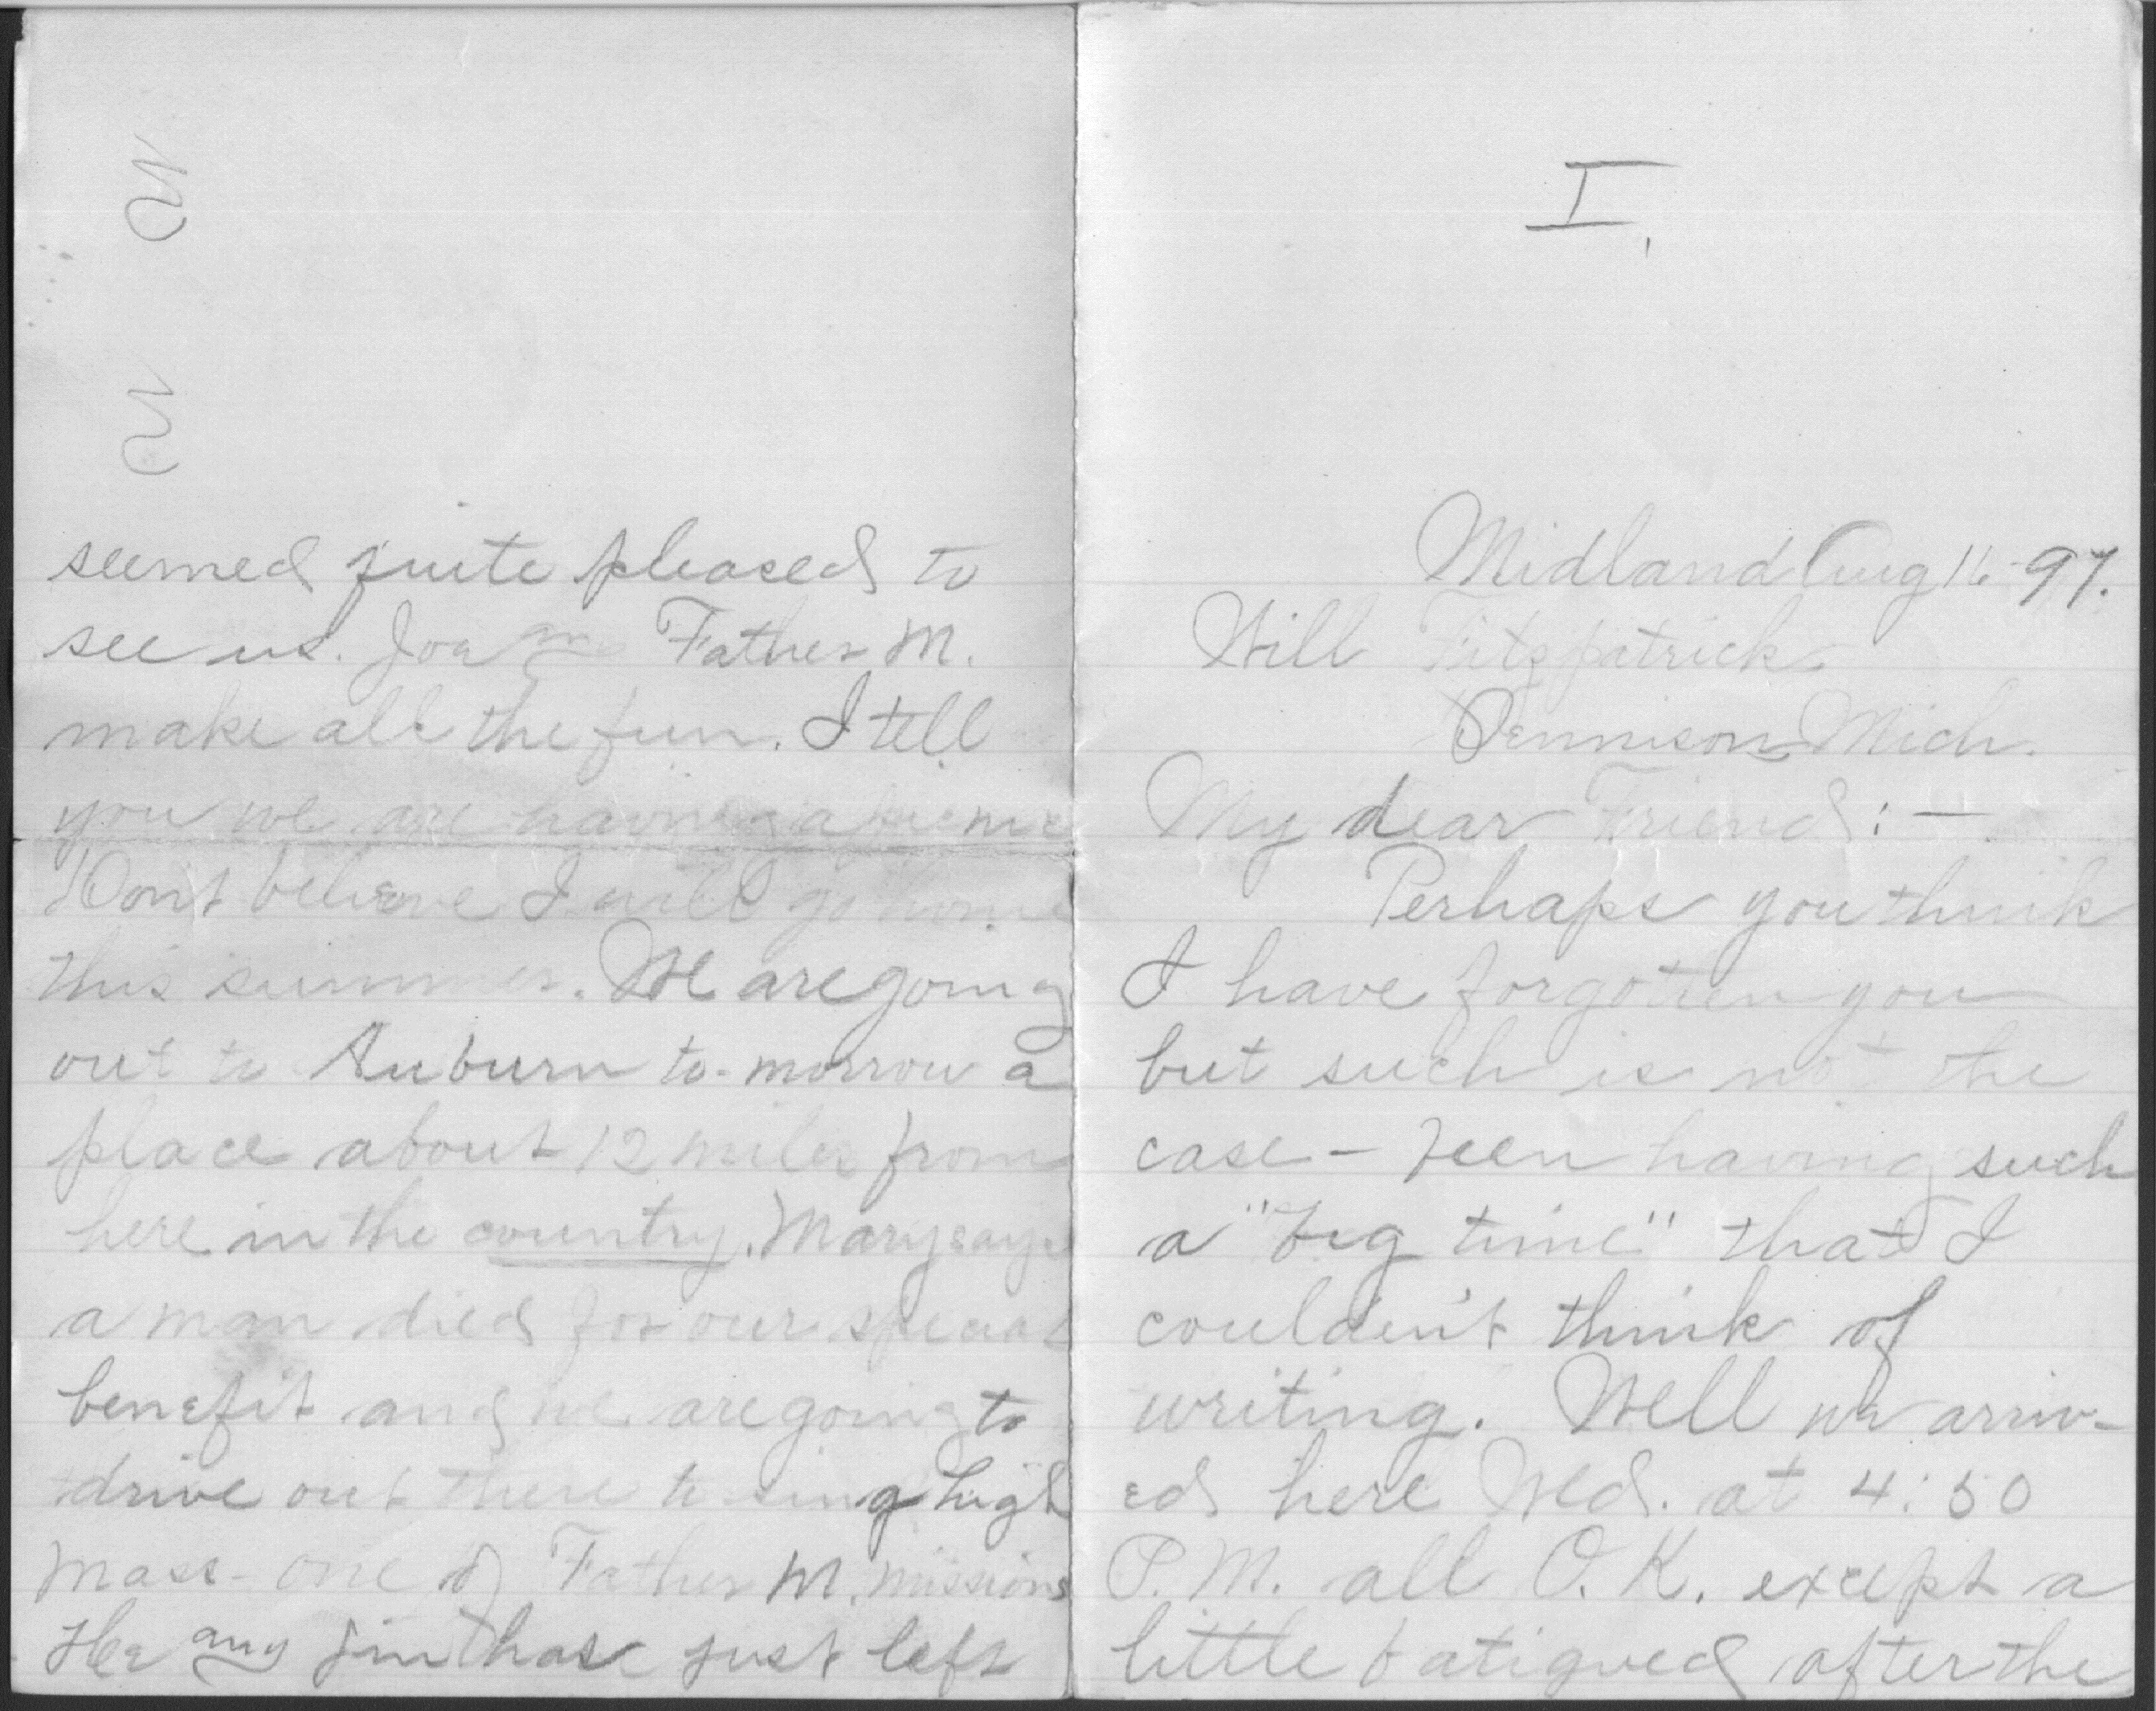 I.
Midland Aug 16-97.
Will Fitzpatrick
Dennison Mich.
My dear Friend: —
Perhaps you think
I have forgotten you
but such is not the
case - been having such
a "big time" that I
couldn't think of
writing. Well we arriv-
ed here Wed. at 4:50
P.M. all O.K. except a
little fatigued after the
seemed quite pleased to
see us. Joe and Father M.
make all the fun. I tell
you we are having a picnic
Don't believe I will go home
this summer. We are going
out to Auburn to-morrow a
place about 12 miles from
here in the country. Mary says
a man died for our special
benefit and we are going to
drive out there to sing high
mass - one of Father M. missions
He and Jim have just left